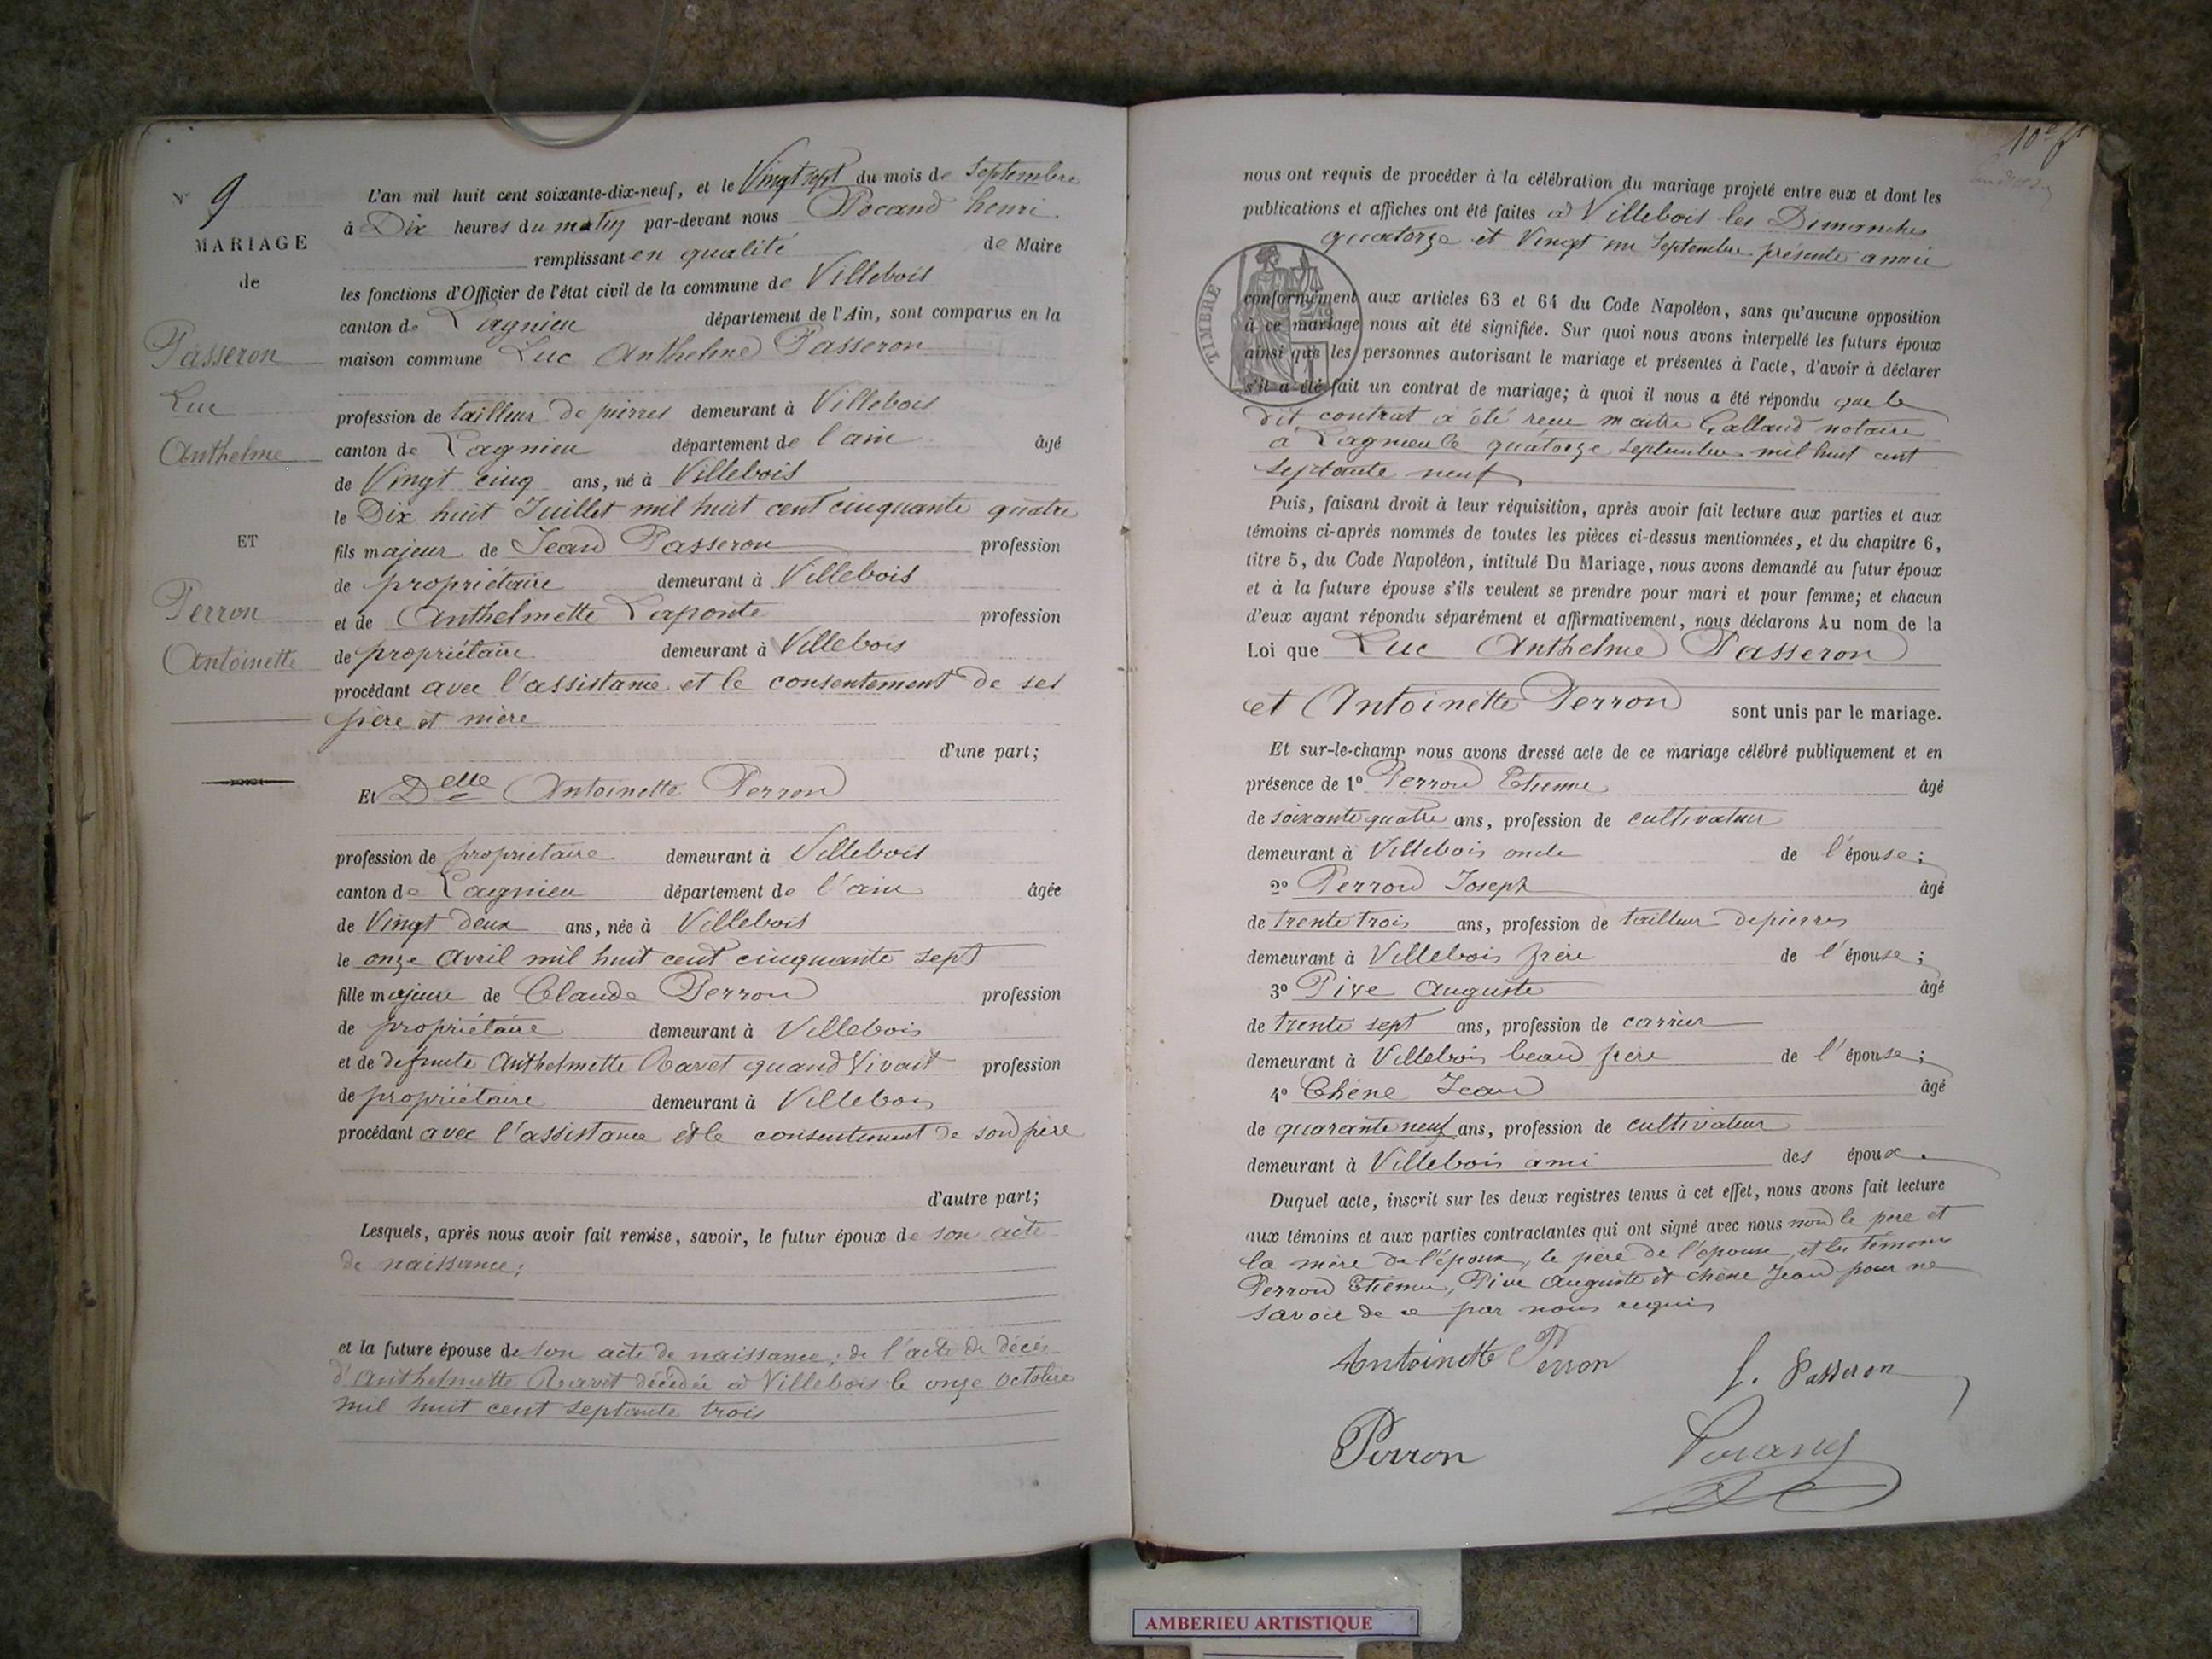 N° 9
MARIAGE
de
Passeron
Luc
Anthelme
ET
Perron
Antoinette
L'an mil huit cent soixante-dix-neuf, et le Vingt sept du mois de Septembre
à Dix heures du matin par-devant nous Pocand henri
remplissant en qualité de Maire
les fonctions d'Officier de l'état civil de la commune de Villebois
canton de Lagnieu département de l'Ain, sont comparus en la
maison commune Luc Anthelme Passeron
profession de tailleur de pierres demeurant à Villebois
canton de Lagnieu département de l'ain âgé
de Vingt cinq ans, né à Villebois
le Dix huit Juillet mil huit cent cinquante quatre
fils majeur de Jean Passeron profession
de propriétaire demeurant à Villebois
et de Anthelmette Laponte profession
de propriétaire demeurant à Villebois
procédant avec l'assistance et le consentement de ses
père et mère
d'une part;
Et Delle Antoinette Perron
profession de propriétaire demeurant à Villebois
canton de Lagnieu département de l'ain âgée
de Vingt deux ans, née à Villebois
le onze Avril mil huit cent cinquante sept
fille majeure de Claude Perron profession
de propriétaire demeurant à Villebois
et de defunte Anthelmette Ravet quand Vivait profession
de propriétaire demeurant à Villebois
procédant avec l'assistance et le consentement de son père
d'autre part;
Lesquels, après nous avoir fait remise, savoir, le futur époux de son acte
de naissance;
et la future épouse de son acte de naissance; de l'acte de décès
d'Anthelmette Ravet décédée à Villebois le onze Octobre
mil huit cent septante trois
nous ont requis de procéder à la célébration du mariage projeté entre eux et dont les
publications et affiches ont été faites à Villebois les Dimanches
quatorze et Vingt un Septembre présente année
TIMBRE
conformément aux articles 63 et 64 du Code Napoléon, sans qu'aucune opposition
à ce mariage nous ait été signifiée. Sur quoi nous avons interpellé les futurs époux
ainsi que les personnes autorisant le mariage et présentes à l'acte, d'avoir à déclarer
s'il a été fait un contrat de mariage; à quoi il nous a été répondu que le
dit contrat a été recu maitre Galland notaire
à Lagnieu le quatorze Septembre mil huit cent
septante neuf
Puis, faisant droit à leur réquisition, après avoir fait lecture aux parties et aux
témoins ci-après nommés de toutes les pièces ci-dessus mentionnées, et du chapitre 6,
titre 5, du Code Napoléon, intitulé Du Mariage, nous avons demandé au futur époux
et à la future épouse s'ils veulent se prendre pour mari et pour femme; et chacun
d'eux ayant répondu séparément et affirmativement, nous déclarons Au nom de la
Loi que Luc Anthelme Passeron
et Antoinette Perron sont unis par le mariage.
Et sur-le-champ nous avons dressé acte de ce mariage célébré publiquement et en
présence de 1° Perron Etienne âgé
de soixante quatre ans, profession de cultivateur
demeurant à Villebois oncle de l'épouse;
2° Perron Joseph âgé
de trente trois ans, profession de tailleur de pierres
demeurant à Villebois frère de l'épouse;
3° Pive Auguste âgé
de trente sept ans, profession de carrier
demeurant à Villebois beau frère de l'épouse;
4° Chêne Jean âgé
de quarante neuf ans, profession de cultivateur
demeurant à Villebois ami des époux.
Duquel acte, inscrit sur les deux registres tenus à cet effet, nous avons fait lecture
aux témoins et aux parties contractantes qui ont signé avec nous non le père et
la mère de l'époux, le père de l'épouse, et les témoins
Perron Etienne, Pive Auguste et chêne Jean pour ne
savoir de ce par nous requis
Antoinette Perron
Passeron
Perron
AMBERIEU ARTISTIQUE